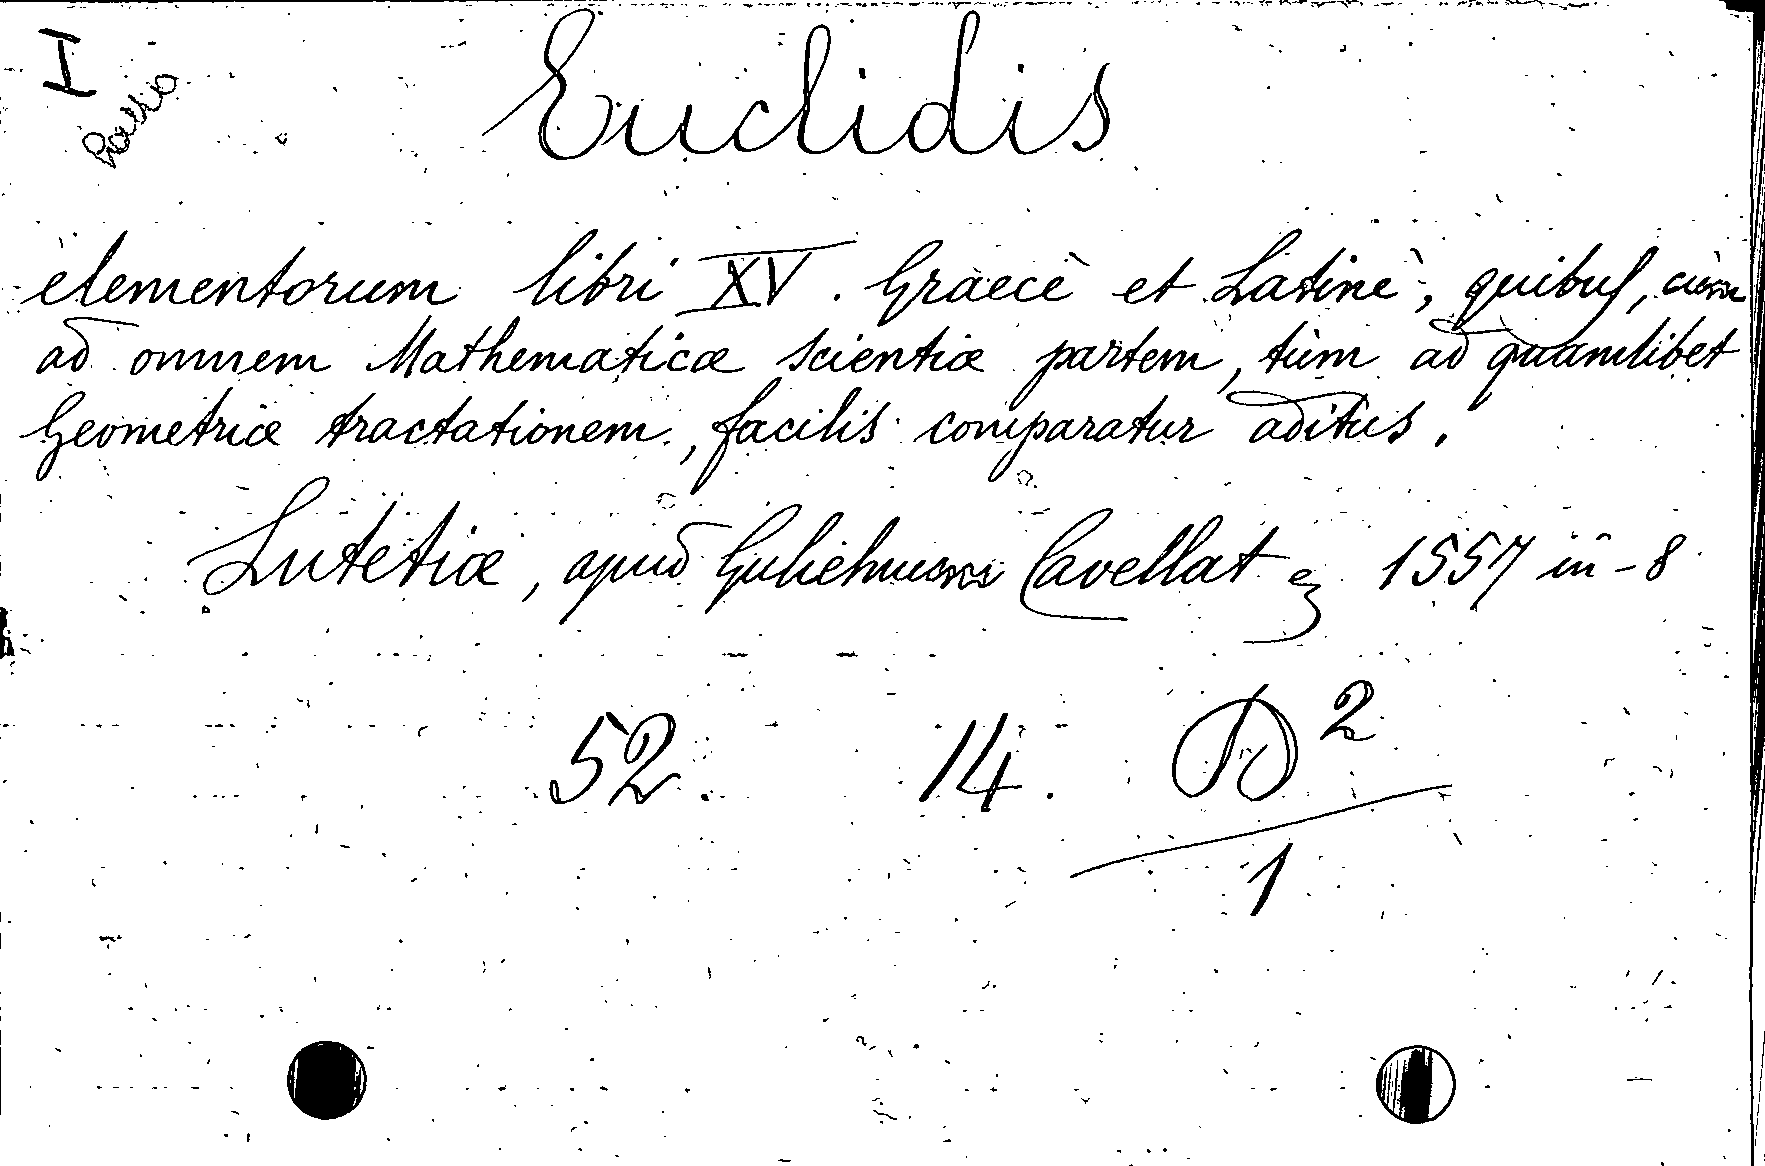 I
Euclidis
elementorum libri XV. Graecè et Latinè, quibus, cùm
ad omnem Mathematicæ scientiæ partem, tùm ad quamlibet
Geometriæ tractationem, facilis comparatur aditus.
Lutetiæ, apud Gulielmum Cavellat 1557 in-8
52. 14. D 2
1